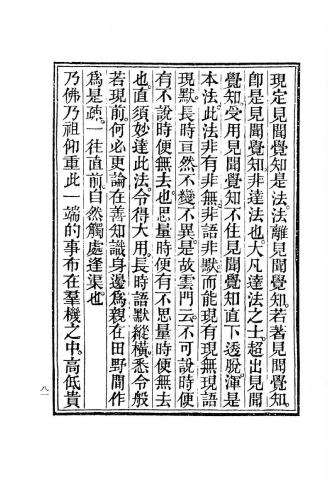 現定見聞覺知是法。法離見聞覺知。若著見聞覺知。
卽是見聞覺知。非達法也。大凡達法之士。超出見聞
覺知。受用見聞覺知。不住見聞覺知。直下透脫。渾是
本法。此法非有非無。非語非默。而能現有現無。現語
現默。長時亘然。不變不異。是故雲門云。不可說時便
有。不說時便無去也。思量時便有。不思量時便無去
也。直須妙達此法。令得大用。長時語默縱橫。悉令般
若現前。何必更論在善知識身邊爲親。在田野間作
爲是疎。一往直前。自然觸處逢渠也。
乃佛乃祖。仰重此一端的事。布在羣機之中。高低貴
八一